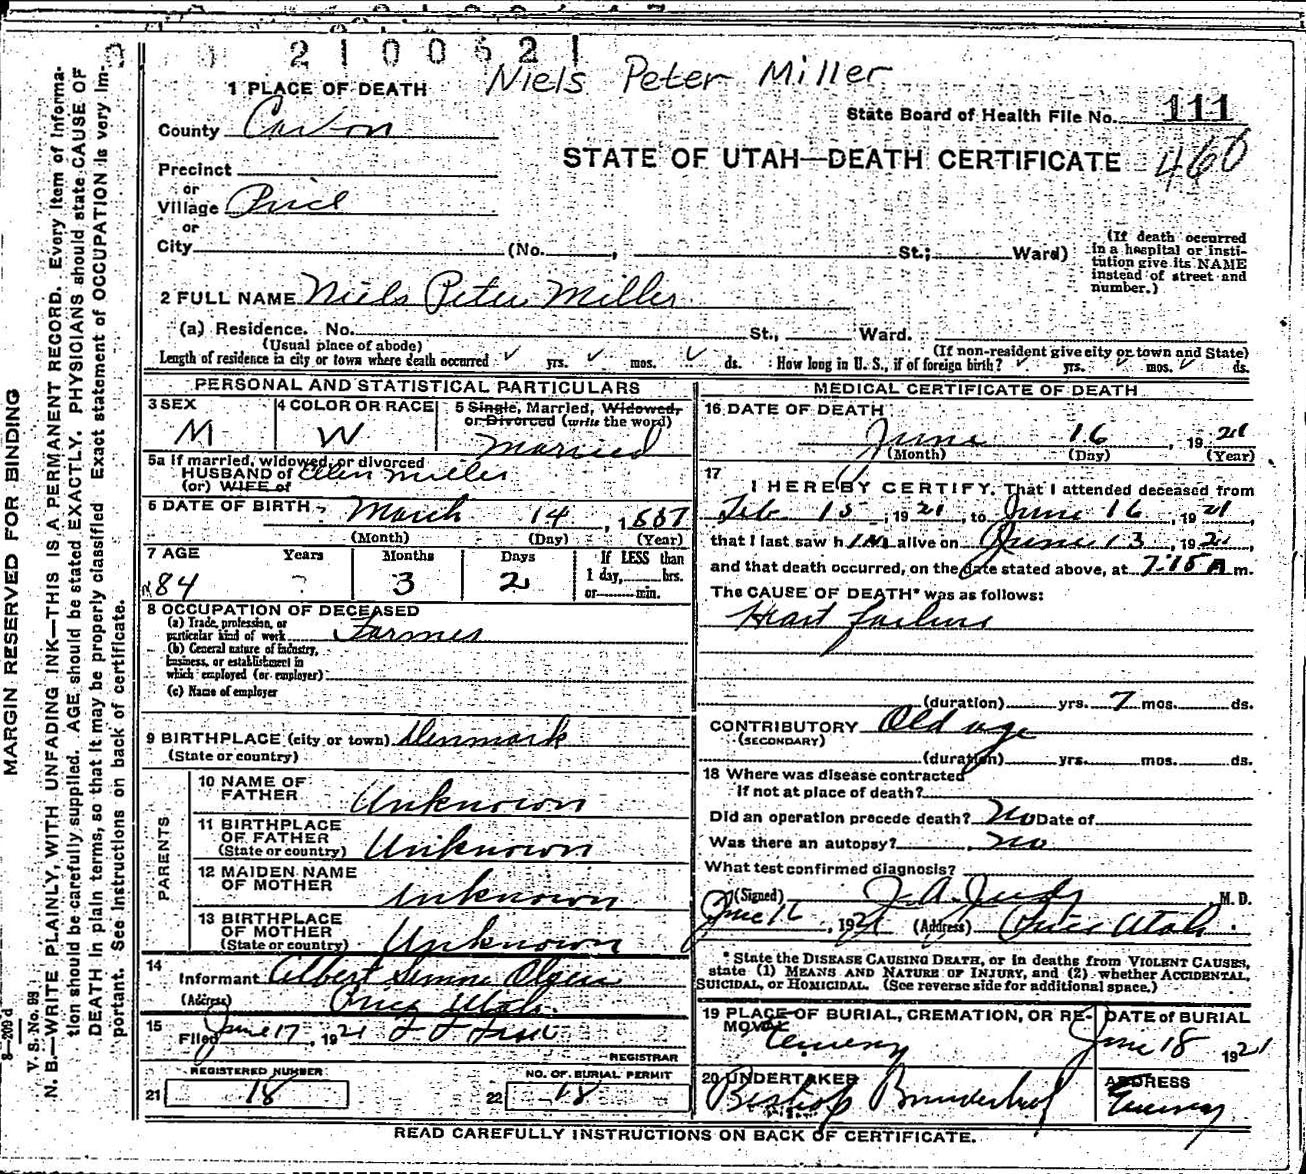 2100621
Niels Peter Miller
1 PLACE OF DEATH
State Board of Health File No. 111
County Carbon
460
STATE OF UTAH—DEATH CERTIFICATE
Precinct
or
Village Price
or
City (No. , St.; Ward)
(If death occurred in a hospital or institution give its NAME instead of street and number.)
2 FULL NAME Niels Peter Miller
(a) Residence. No. St., Ward.
(Usual place of abode) (If non-resident give city or town and State)
Length of residence in city or town where death occurred yrs. mos. ds. How long in U. S., if of foreign birth? yrs. mos. ds.
PERSONAL AND STATISTICAL PARTICULARS
3 SEX M
4 COLOR OR RACE W
5 Single, Married, Widowed, or Divorced (write the word) Married
5a If married, widowed, or divorced
HUSBAND of Ellen Miller
(or) WIFE of
6 DATE OF BIRTH March 14, 1837
(Month) (Day) (Year)
7 AGE Years Months Days If LESS than
84 3 2 1 day, hrs.
or min.
8 OCCUPATION OF DECEASED
(a) Trade, profession, or
particular kind of work Farmer
(b) General nature of industry,
business, or establishment in
which employed (or employer)
(c) Name of employer
9 BIRTHPLACE (city or town) Denmark
(State or country)
PARENTS
10 NAME OF FATHER Unknown
11 BIRTHPLACE OF FATHER (State or country) Unknown
12 MAIDEN NAME OF MOTHER Unknown
13 BIRTHPLACE OF MOTHER (State or country) Unknown
14 Informant Albert Simon Olsen
(Address) Price Utah.
15 Filed June 17, 1921
REGISTRAR
REGISTERED NUMBER
21 18
NO. OF BURIAL PERMIT
22 18
MEDICAL CERTIFICATE OF DEATH
16 DATE OF DEATH
June 16, 1921
(Month) (Day) (Year)
17 I HEREBY CERTIFY, That I attended deceased from
Feb 15, 1921, to June 16, 1921,
that I last saw him alive on June 13, 1921,
and that death occurred, on the date stated above, at 7:15 A m.
The CAUSE OF DEATH* was as follows:
Heart failure
(duration) yrs. 7 mos. ds.
CONTRIBUTORY Old age
(SECONDARY)
(duration) yrs. mos. ds.
18 Where was disease contracted
if not at place of death?
Did an operation precede death? No Date of
Was there an autopsy? no
What test confirmed diagnosis?
(Signed) J. A. Judy M. D.
June 16, 1921 (Address) Price Utah.
* State the DISEASE CAUSING DEATH, or in deaths from VIOLENT CAUSES,
state (1) MEANS AND NATURE OF INJURY, and (2) whether ACCIDENTAL,
SUICIDAL, or HOMICIDAL. (See reverse side for additional space.)
19 PLACE OF BURIAL, CREMATION, OR REMOVAL Emery
DATE of BURIAL June 18 1921
20 UNDERTAKER Bishop
ADDRESS Emery
READ CAREFULLY INSTRUCTIONS ON BACK OF CERTIFICATE.
MARGIN RESERVED FOR BINDING
V. S. No. 99
N. B.—WRITE PLAINLY, WITH UNFADING INK—THIS IS A PERMANENT RECORD. Every item of information should be carefully supplied. AGE should be stated EXACTLY. PHYSICIANS should state CAUSE OF DEATH in plain terms, so that it may be properly classified. Exact statement of OCCUPATION is very important. See instructions on back of certificate.